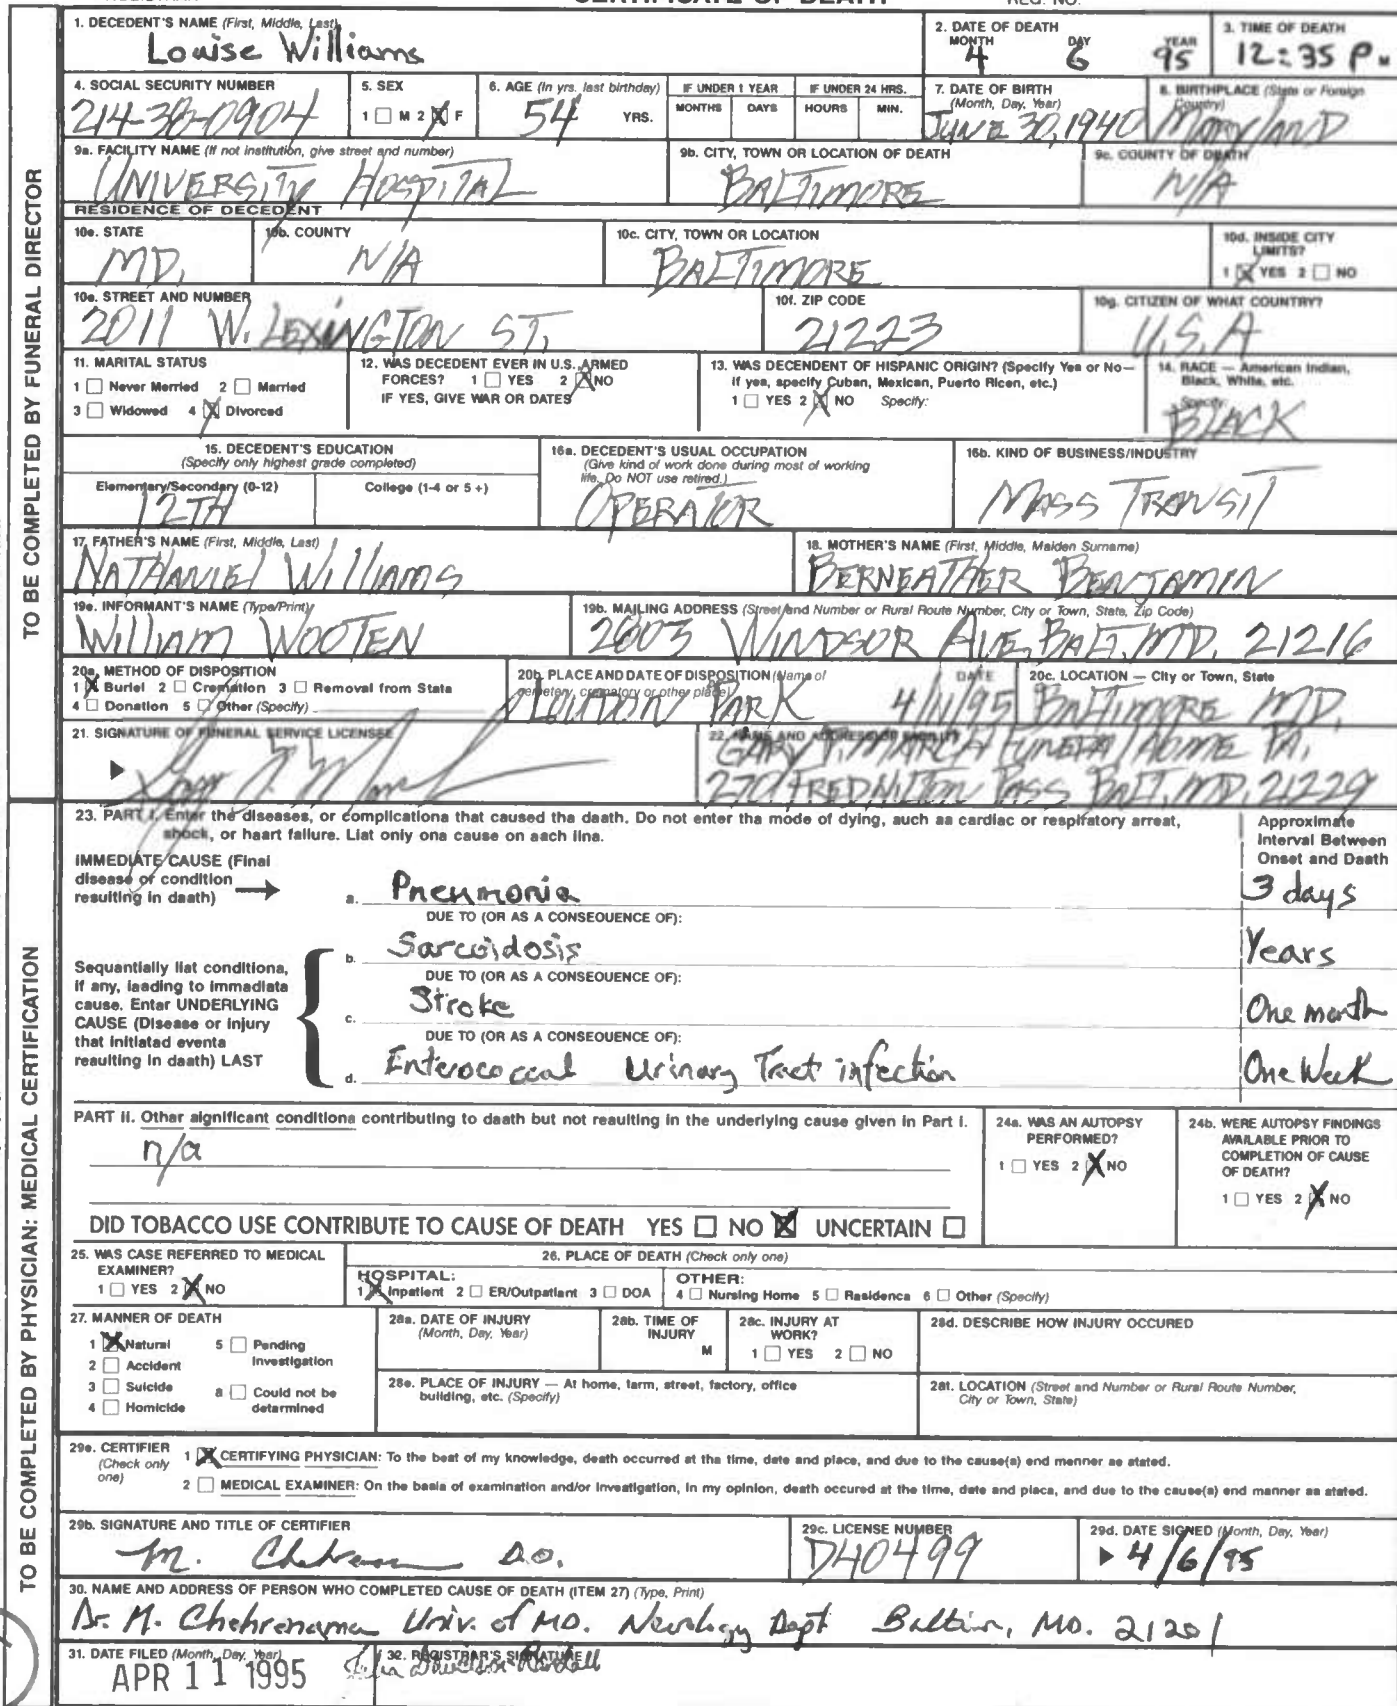 CERTIFICATE OF DEATH
REG. NO.
1. DECEDENT'S NAME (First, Middle, Last)
Louise Williams
2. DATE OF DEATH
MONTH DAY YEAR
4 6 95
3. TIME OF DEATH
12:35 P M
4. SOCIAL SECURITY NUMBER
214-38-0904
5. SEX
1 ☐ M 2 ☒ F
6. AGE (In yrs. last birthday)
54 YRS.
IF UNDER 1 YEAR
MONTHS DAYS
IF UNDER 24 HRS.
HOURS MIN.
7. DATE OF BIRTH
(Month, Day, Year)
JUNE 30, 1940
8. BIRTHPLACE (State or Foreign
Country)
MARYLAND
9a. FACILITY NAME (If not institution, give street and number)
UNIVERSITY HOSPITAL
9b. CITY, TOWN OR LOCATION OF DEATH
BALTIMORE
9c. COUNTY OF DEATH
N/A
RESIDENCE OF DECEDENT
10a. STATE
MD.
10b. COUNTY
N/A
10c. CITY, TOWN OR LOCATION
BALTIMORE
10d. INSIDE CITY
LIMITS?
1 ☒ YES 2 ☐ NO
10e. STREET AND NUMBER
2011 W. LEXINGTON ST.
10f. ZIP CODE
21223
10g. CITIZEN OF WHAT COUNTRY?
U.S.A
11. MARITAL STATUS
1 ☐ Never Married 2 ☐ Married
3 ☐ Widowed 4 ☒ Divorced
12. WAS DECEDENT EVER IN U.S. ARMED
FORCES? 1 ☐ YES 2 ☒ NO
IF YES, GIVE WAR OR DATES
13. WAS DECENDENT OF HISPANIC ORIGIN? (Specify Yes or No—
If yes, specify Cuban, Mexican, Puerto Rican, etc.)
1 ☐ YES 2 ☒ NO Specify:
14. RACE — American Indian,
Black, White, etc.
Specify:
BLACK
15. DECEDENT'S EDUCATION
(Specify only highest grade completed)
Elementary/Secondary (0-12) College (1-4 or 5+)
12TH
16a. DECEDENT'S USUAL OCCUPATION
(Give kind of work done during most of working
life. Do NOT use retired.)
OPERATOR
16b. KIND OF BUSINESS/INDUSTRY
MASS TRANSIT
17. FATHER'S NAME (First, Middle, Last)
NATHANIEL WILLIAMS
18. MOTHER'S NAME (First, Middle, Maiden Surname)
BERNEATHER BENJAMIN
19a. INFORMANT'S NAME (Type/Print)
WILLIAM WOOTEN
19b. MAILING ADDRESS (Street and Number or Rural Route Number, City or Town, State, Zip Code)
2603 WINDSOR AVE, BALT. MD. 21216
20a. METHOD OF DISPOSITION
1 ☒ Burial 2 ☐ Cremation 3 ☐ Removal from State
4 ☐ Donation 5 ☐ Other (Specify)
20b. PLACE AND DATE OF DISPOSITION (Name of
cemetery, crematory or other place) DATE
LOUDON PARK 4/11/95
20c. LOCATION — City or Town, State
BALTIMORE MD.
21. SIGNATURE OF FUNERAL SERVICE LICENSEE
22. NAME AND ADDRESS OF FACILITY
GARY P. MARCH FUNERAL HOME PA.
270 FREDHILTON PASS BALT. MD. 21229
TO BE COMPLETED BY FUNERAL DIRECTOR
23. PART I. Enter the diseases, or complications that caused the death. Do not enter the mode of dying, such as cardiac or respiratory arrest,
shock, or heart failure. List only one cause on each line.
Approximate
Interval Between
Onset and Death
IMMEDIATE CAUSE (Final
disease or condition
resulting in death)
a. Pneumonia 3 days
DUE TO (OR AS A CONSEQUENCE OF):
b. Sarcoidosis Years
DUE TO (OR AS A CONSEQUENCE OF):
c. Stroke One month
DUE TO (OR AS A CONSEQUENCE OF):
d. Enterococcal Urinary Tract infection One Week
Sequentially list conditions,
if any, leading to immediate
cause. Enter UNDERLYING
CAUSE (Disease or injury
that initiated events
resulting in death) LAST
PART II. Other significant conditions contributing to death but not resulting in the underlying cause given in Part I.
n/a
24a. WAS AN AUTOPSY
PERFORMED?
1 ☐ YES 2 ☒ NO
24b. WERE AUTOPSY FINDINGS
AVAILABLE PRIOR TO
COMPLETION OF CAUSE
OF DEATH?
1 ☐ YES 2 ☒ NO
DID TOBACCO USE CONTRIBUTE TO CAUSE OF DEATH YES ☐ NO ☒ UNCERTAIN ☐
25. WAS CASE REFERRED TO MEDICAL
EXAMINER?
1 ☐ YES 2 ☒ NO
26. PLACE OF DEATH (Check only one)
HOSPITAL:
1 ☒ Inpatient 2 ☐ ER/Outpatient 3 ☐ DOA
OTHER:
4 ☐ Nursing Home 5 ☐ Residence 6 ☐ Other (Specify)
27. MANNER OF DEATH
1 ☒ Natural 5 ☐ Pending
Investigation
2 ☐ Accident
3 ☐ Suicide 8 ☐ Could not be
determined
4 ☐ Homicide
28a. DATE OF INJURY
(Month, Day, Year)
28b. TIME OF
INJURY
M
28c. INJURY AT
WORK?
1 ☐ YES 2 ☐ NO
28d. DESCRIBE HOW INJURY OCCURED
28e. PLACE OF INJURY — At home, farm, street, factory, office
building, etc. (Specify)
28f. LOCATION (Street and Number or Rural Route Number,
City or Town, State)
29a. CERTIFIER
(Check only
one)
1 ☒ CERTIFYING PHYSICIAN: To the best of my knowledge, death occurred at the time, date and place, and due to the cause(s) and manner as stated.
2 ☐ MEDICAL EXAMINER: On the basis of examination and/or investigation, in my opinion, death occured at the time, date and place, and due to the cause(s) and manner as stated.
29b. SIGNATURE AND TITLE OF CERTIFIER
M. Chehrenama D.O.
29c. LICENSE NUMBER
D40499
29d. DATE SIGNED (Month, Day, Year)
4/6/95
30. NAME AND ADDRESS OF PERSON WHO COMPLETED CAUSE OF DEATH (ITEM 27) (Type, Print)
Dr. M. Chehrenama Univ. of MD. Neurology Dept MD. 21201
31. DATE FILED (Month, Day, Year)
APR 11 1995
32. REGISTRAR'S SIGNATURE
TO BE COMPLETED BY PHYSICIAN: MEDICAL CERTIFICATION